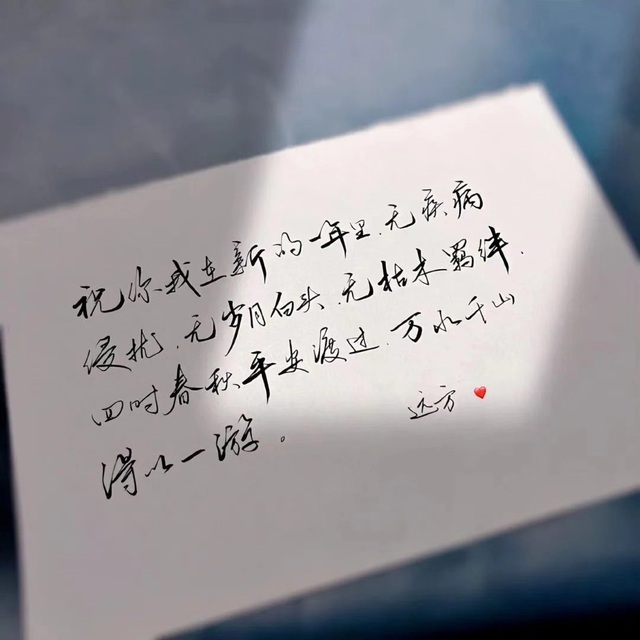 祝你我在新的一年里.无疾病
侵扰.无岁月白头.无枯木羁绊.
四时春秋平安渡过.万水千山
得以一游。
远方❤️